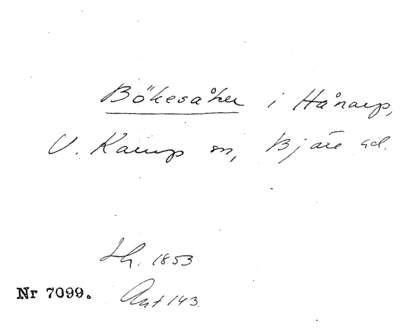 Bökesåker i Hånarp,
V. Karup sn, Bjäre hd.
Lh. 1853
Nr 7099. Ant 143